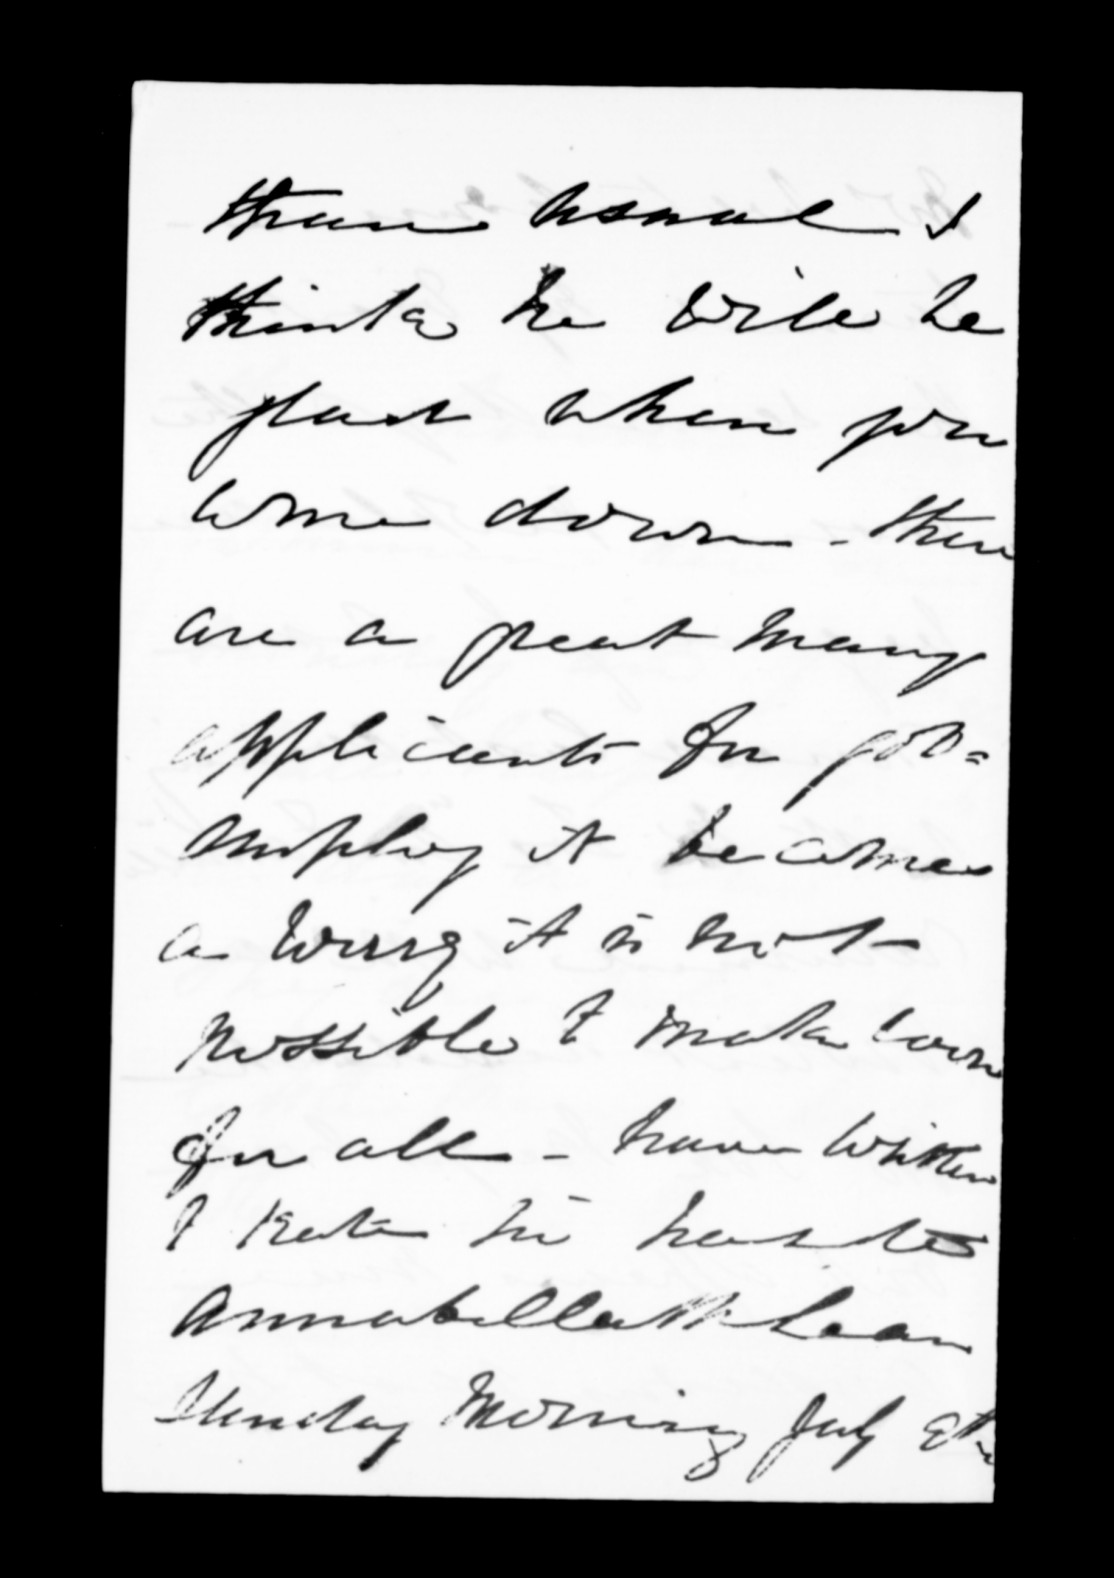 than usual I
think he will be
glad when you
come down - there
are a great many
applicants for gov=
employ it becomes
a worry it is not
possible to make room
for all - have written
to Kate in haste
Annabella McLean
Sunday Morning July 8th